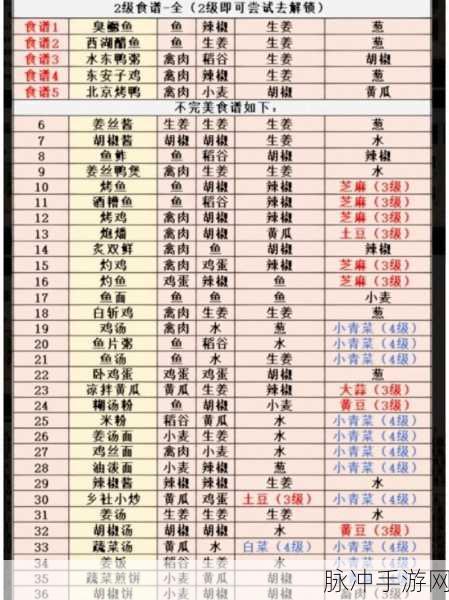 2级食谱-全（2级即可尝试去解锁）
食谱1 臭鳜鱼 鱼 辣椒 生姜 葱
食谱2 西湖醋鱼 鱼 生姜 生姜 葱
食谱3 水东鸭粥 禽肉 稻谷 生姜 胡椒
食谱4 东安子鸡 禽肉 辣椒 生姜 葱
食谱5 北京烤鸭 禽肉 小麦 胡椒 黄瓜
不完美食谱如下：
6 姜丝酱 生姜 生姜 生姜 葱
7 胡椒酱 胡椒 胡椒 生姜 水
8 鱼鲊 鱼 稻谷 胡椒 辣椒
9 姜丝鸭煲 禽肉 生姜 生姜 水
10 烤鱼 鱼 胡椒 辣椒 芝麻（3级）
11 酒糟鱼 鱼 稻谷 辣椒 芝麻（3级）
12 烤鸡 禽肉 胡椒 辣椒 芝麻（3级）
13 炮燔 禽肉 胡椒 黄瓜 土豆（3级）
14 炙双鲜 禽肉 鱼 胡椒 辣椒
15 灼鸡 禽肉 鸡蛋 辣椒 芝麻（3级）
16 灼鱼 鸡蛋 辣椒 鱼 芝麻（3级）
17 鱼面 鱼 鱼 鱼 小麦
18 白斩鸡 禽肉 生姜 生姜 葱
19 鸡汤 禽肉 水 葱 小青菜（4级）
20 鱼片粥 鱼 稻谷 水 小青菜（4级）
21 鱼汤 鱼 水 生姜 小青菜（4级）
22 卧鸡蛋 鸡蛋 鸡蛋 胡椒 葱
23 凉拌黄瓜 黄瓜 生姜 辣椒 大蒜（3级）
24 糊汤粉 鱼 胡椒 小麦 黄豆（3级）
25 米粉 稻谷 黄瓜 水 小青菜（4级）
26 姜汤面 小麦 生姜 水 小青菜（4级）
27 鸡丝面 小麦 禽肉 水 小青菜（4级）
28 油泼面 小麦 辣椒 葱 小青菜（4级）
29 辣椒酱 辣椒 辣椒 生姜 水
30 乡社小炒 黄瓜 鸡蛋 土豆（3级） 小青菜（4级）
31 姜汤 生姜 生姜 生姜 水
32 胡椒汤 胡椒 胡椒 水 黄豆（3级）
33 蔬菜汤 黄瓜 水 白菜（4级） 小青菜（4级）
34 姜饭 生姜 稻谷 水 小青菜（4级）
35 蔬菜煎饼 小麦 黄瓜 胡椒
36
脉冲手游网